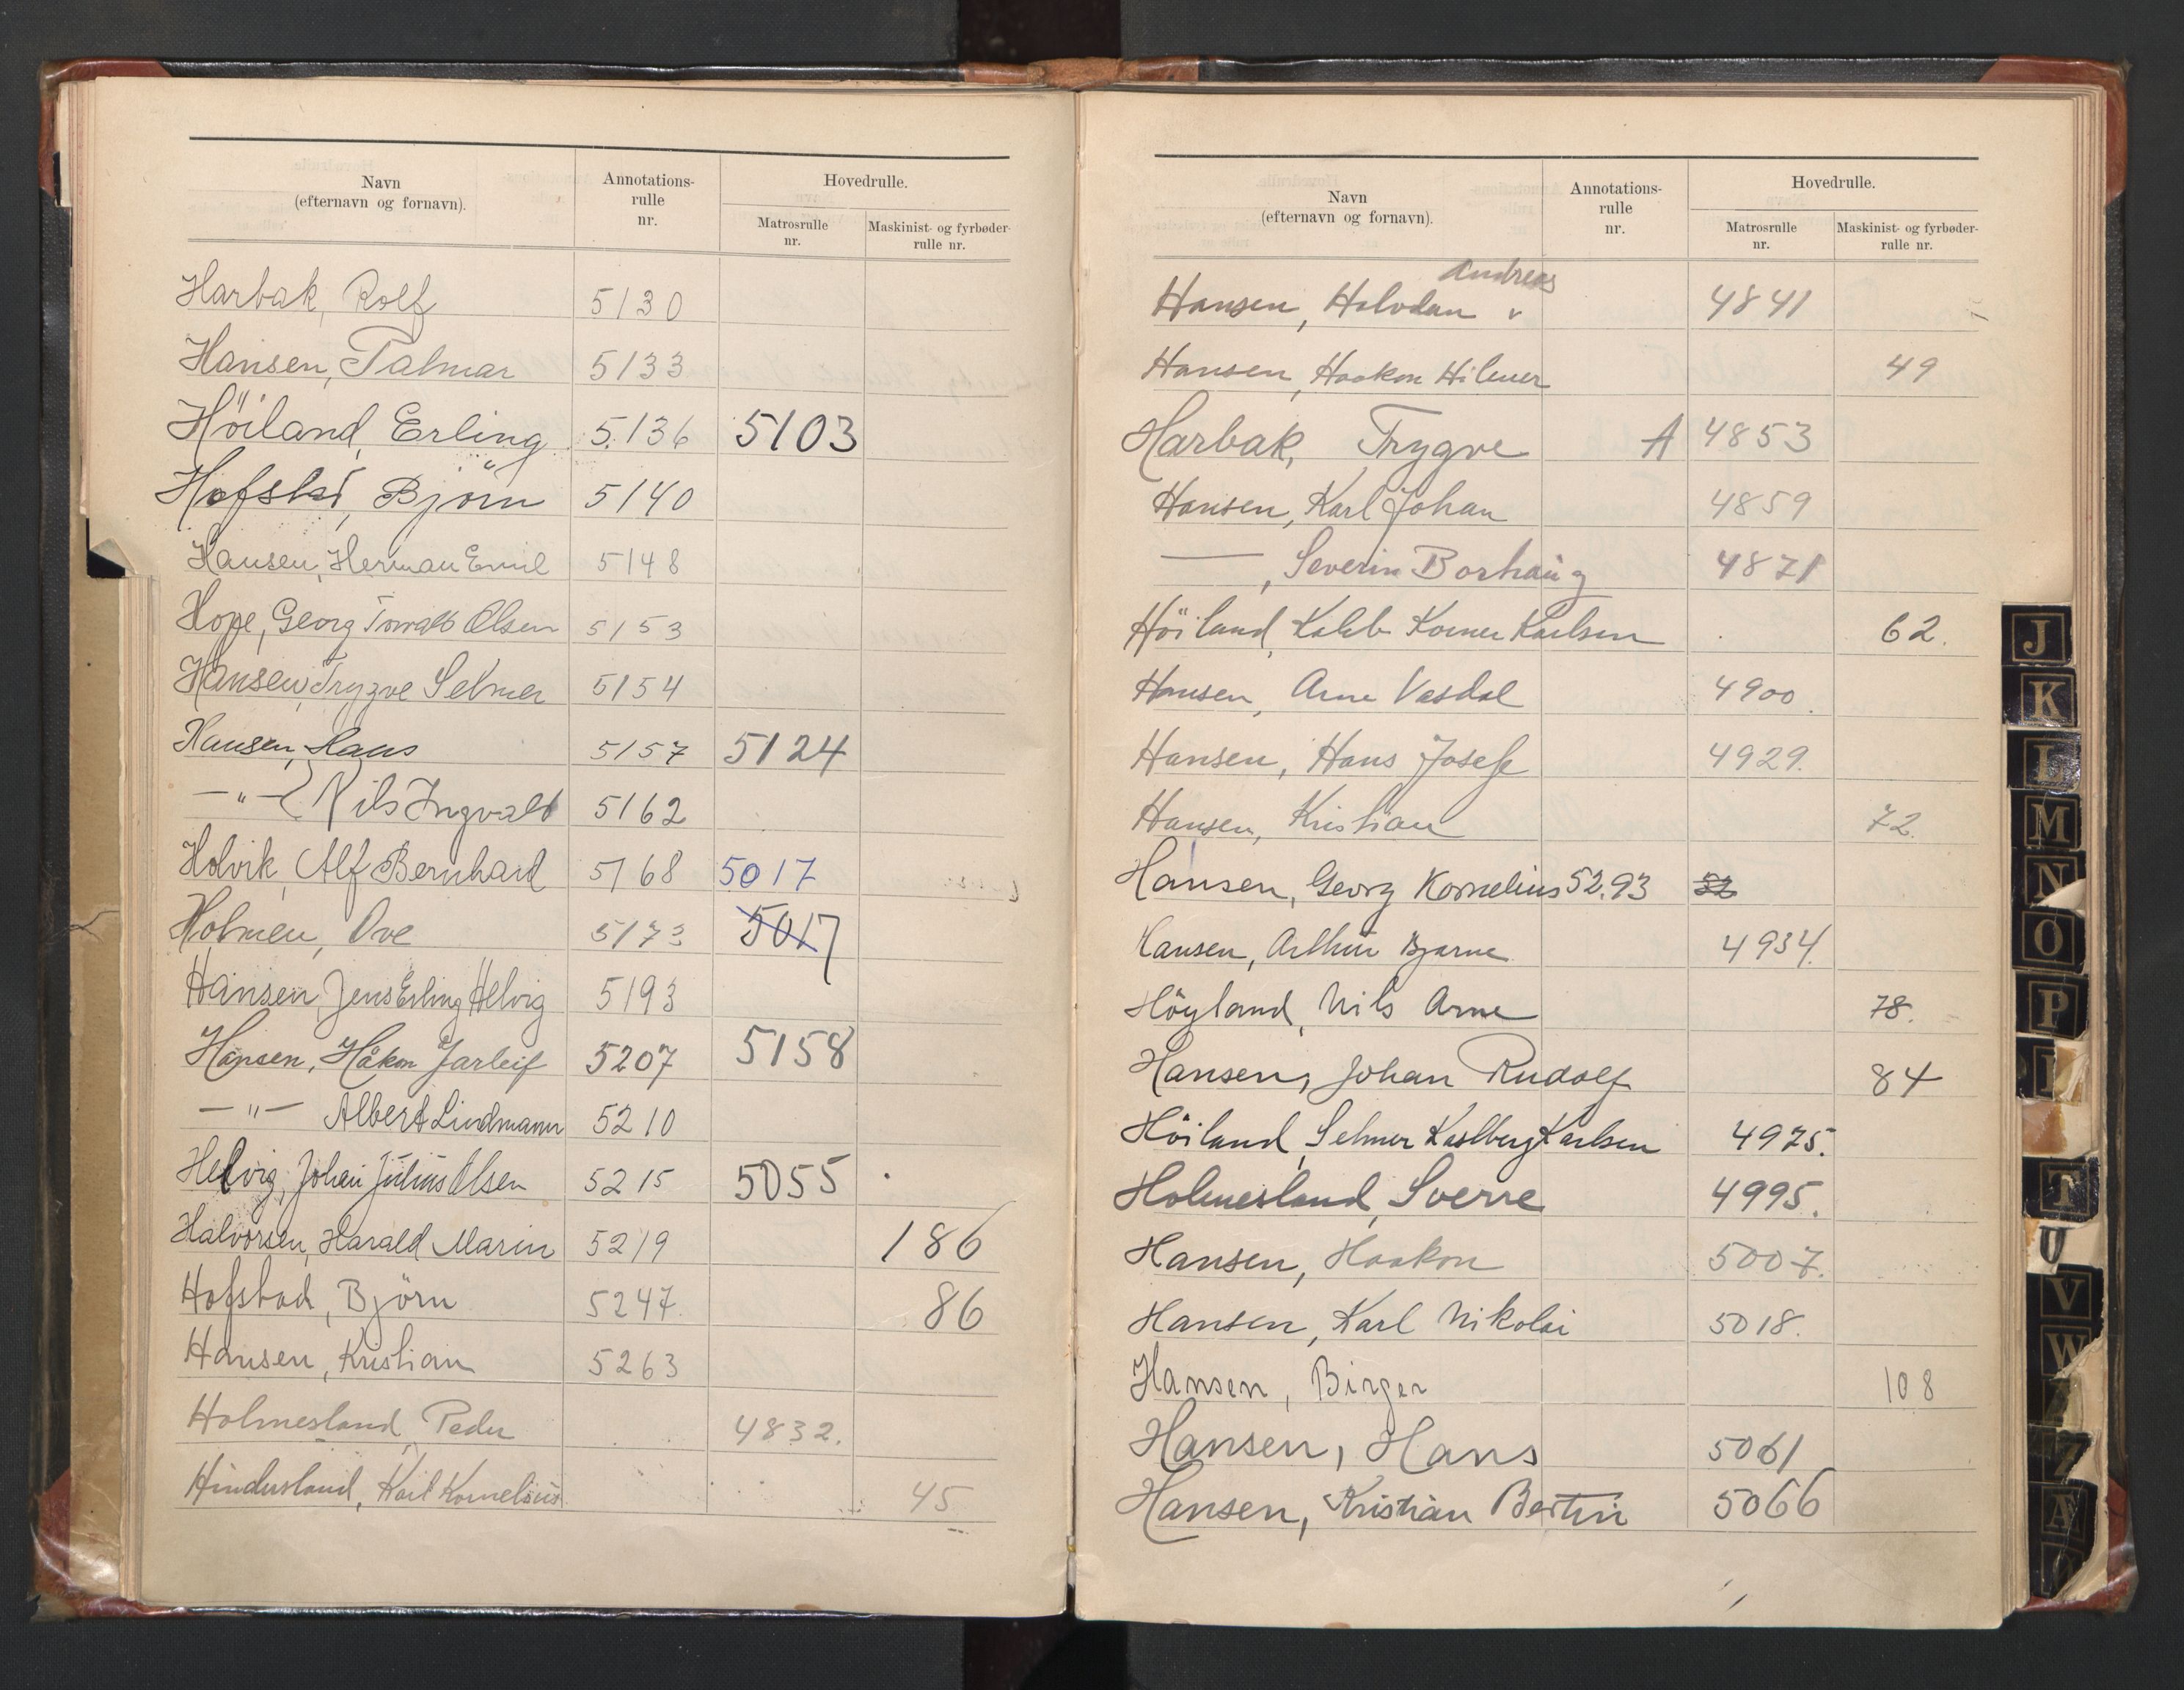 Navn
(efternavn og fornavn).
Annotations-
rulle
nr.
Hovedrulle.
Matrosrulle
nr.
Maskinist- og fyrbøder-
rulle nr.
Harbak, Rolf 5130
Hansen, Palmar 5133
Höiland, Erling 5136 5103
Hofstad, Björn 5140
Hansen, Herman Emil 5148
Hope, Georg Torvald Olsen 5153
Hansen, Trygve Selmer 5154
Hansen, Hans 5157 5124
—"— Nils Ingvald 5162
Holvik, Alf Bernhard 5168 5017
Holmen, Ove 5173 5017
Hansen, Jens Erling Helvig 5193
Hansen, Håkon Jarleif 5207 5158
—"— Albert Lindmann 5210
Helvig, Johan Julius Olsen 5215 5055
Halvorsen, Harald Marin 5219 186
Hofstad, Björn 5247 86
Hansen, Kristian 5263
Holmesland, Peder 4832.
Hindersland, Karl Kornelius 45
Navn
(efternavn og fornavn).
Annotations-
rulle
nr.
Hovedrulle.
Matrosrulle
nr.
Maskinist- og fyrbøder-
rulle nr.
Andreas
Hansen, Halvdan v 4841
Hansen, Haakon Hilmer 49
Harbak, Trygve A 4853
Hansen, Karl Johan 4859
—, Severin Borhaug 4871
Höiland, Kaleb Karlsen 62.
Hansen, Arne Vasdal 4900.
Hansen, Hans Josef 4929.
Hansen, Kristian 72.
Hansen, Georg Kornelius 52.93 52
Hansen, Arthur Bjarne 4934.
Höyland, Nils Arne 78.
Hansen, Johan Rudolf 84
Höiland, Selmer Kaslberg Karlsen 4975.
Holmesland, Sverre 4995.
Hansen, Haakon 5007.
Hansen, Karl Nikolai 5018.
Hansen, Birger 108
Hansen, Hans 5061
Hansen, Kristian Bertin 5066
J
K
L
M
N
O
P
T
U
V
W
Z
Æ